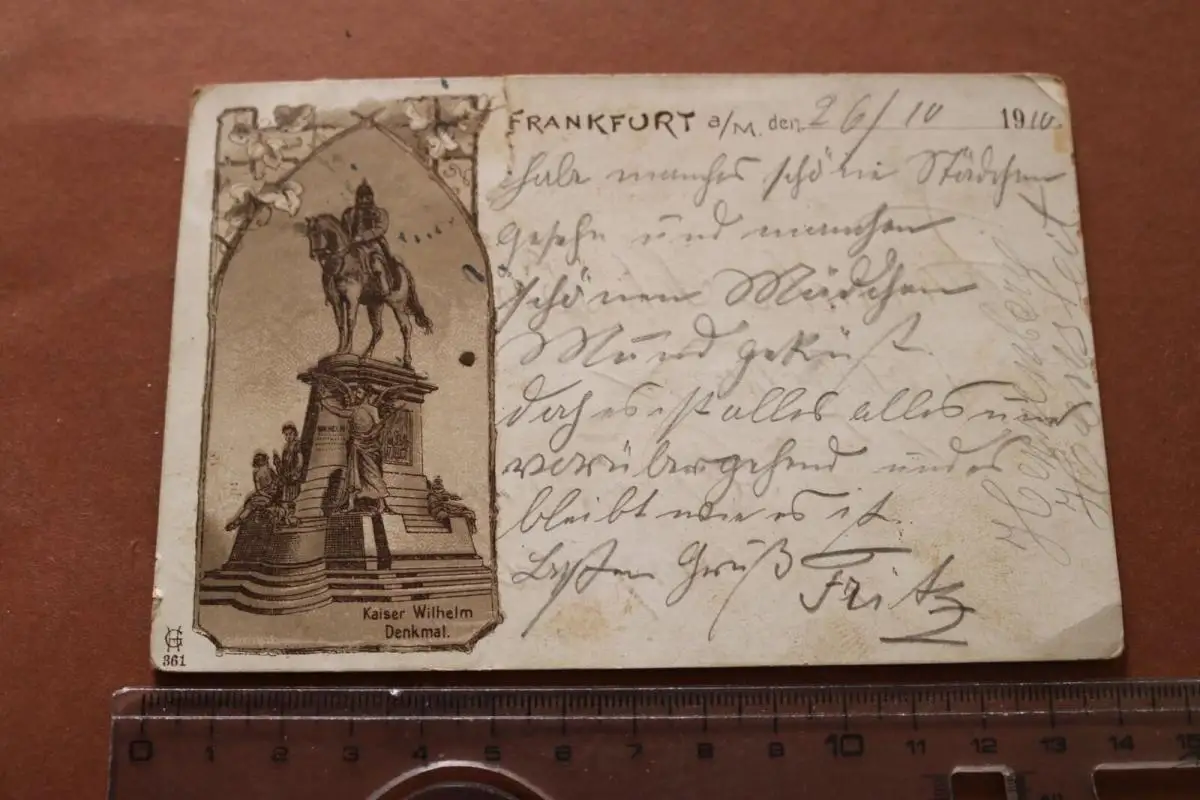 FRANKFURT a/M. den 26/10 1910.
habe manches schöne Städchen
gesehn und manchen
schönen Mädchen
Mund geküßt.
doch es ist alles alles nur
vorübergehend und es
bleibt wie es ist.
Besten Gruß
Fritz
WILHELM
Kaiser Wilhelm
Denkmal.
HG
361
0 1 2 3 4 5 6 7 8 9 10 11 12 13 14 15